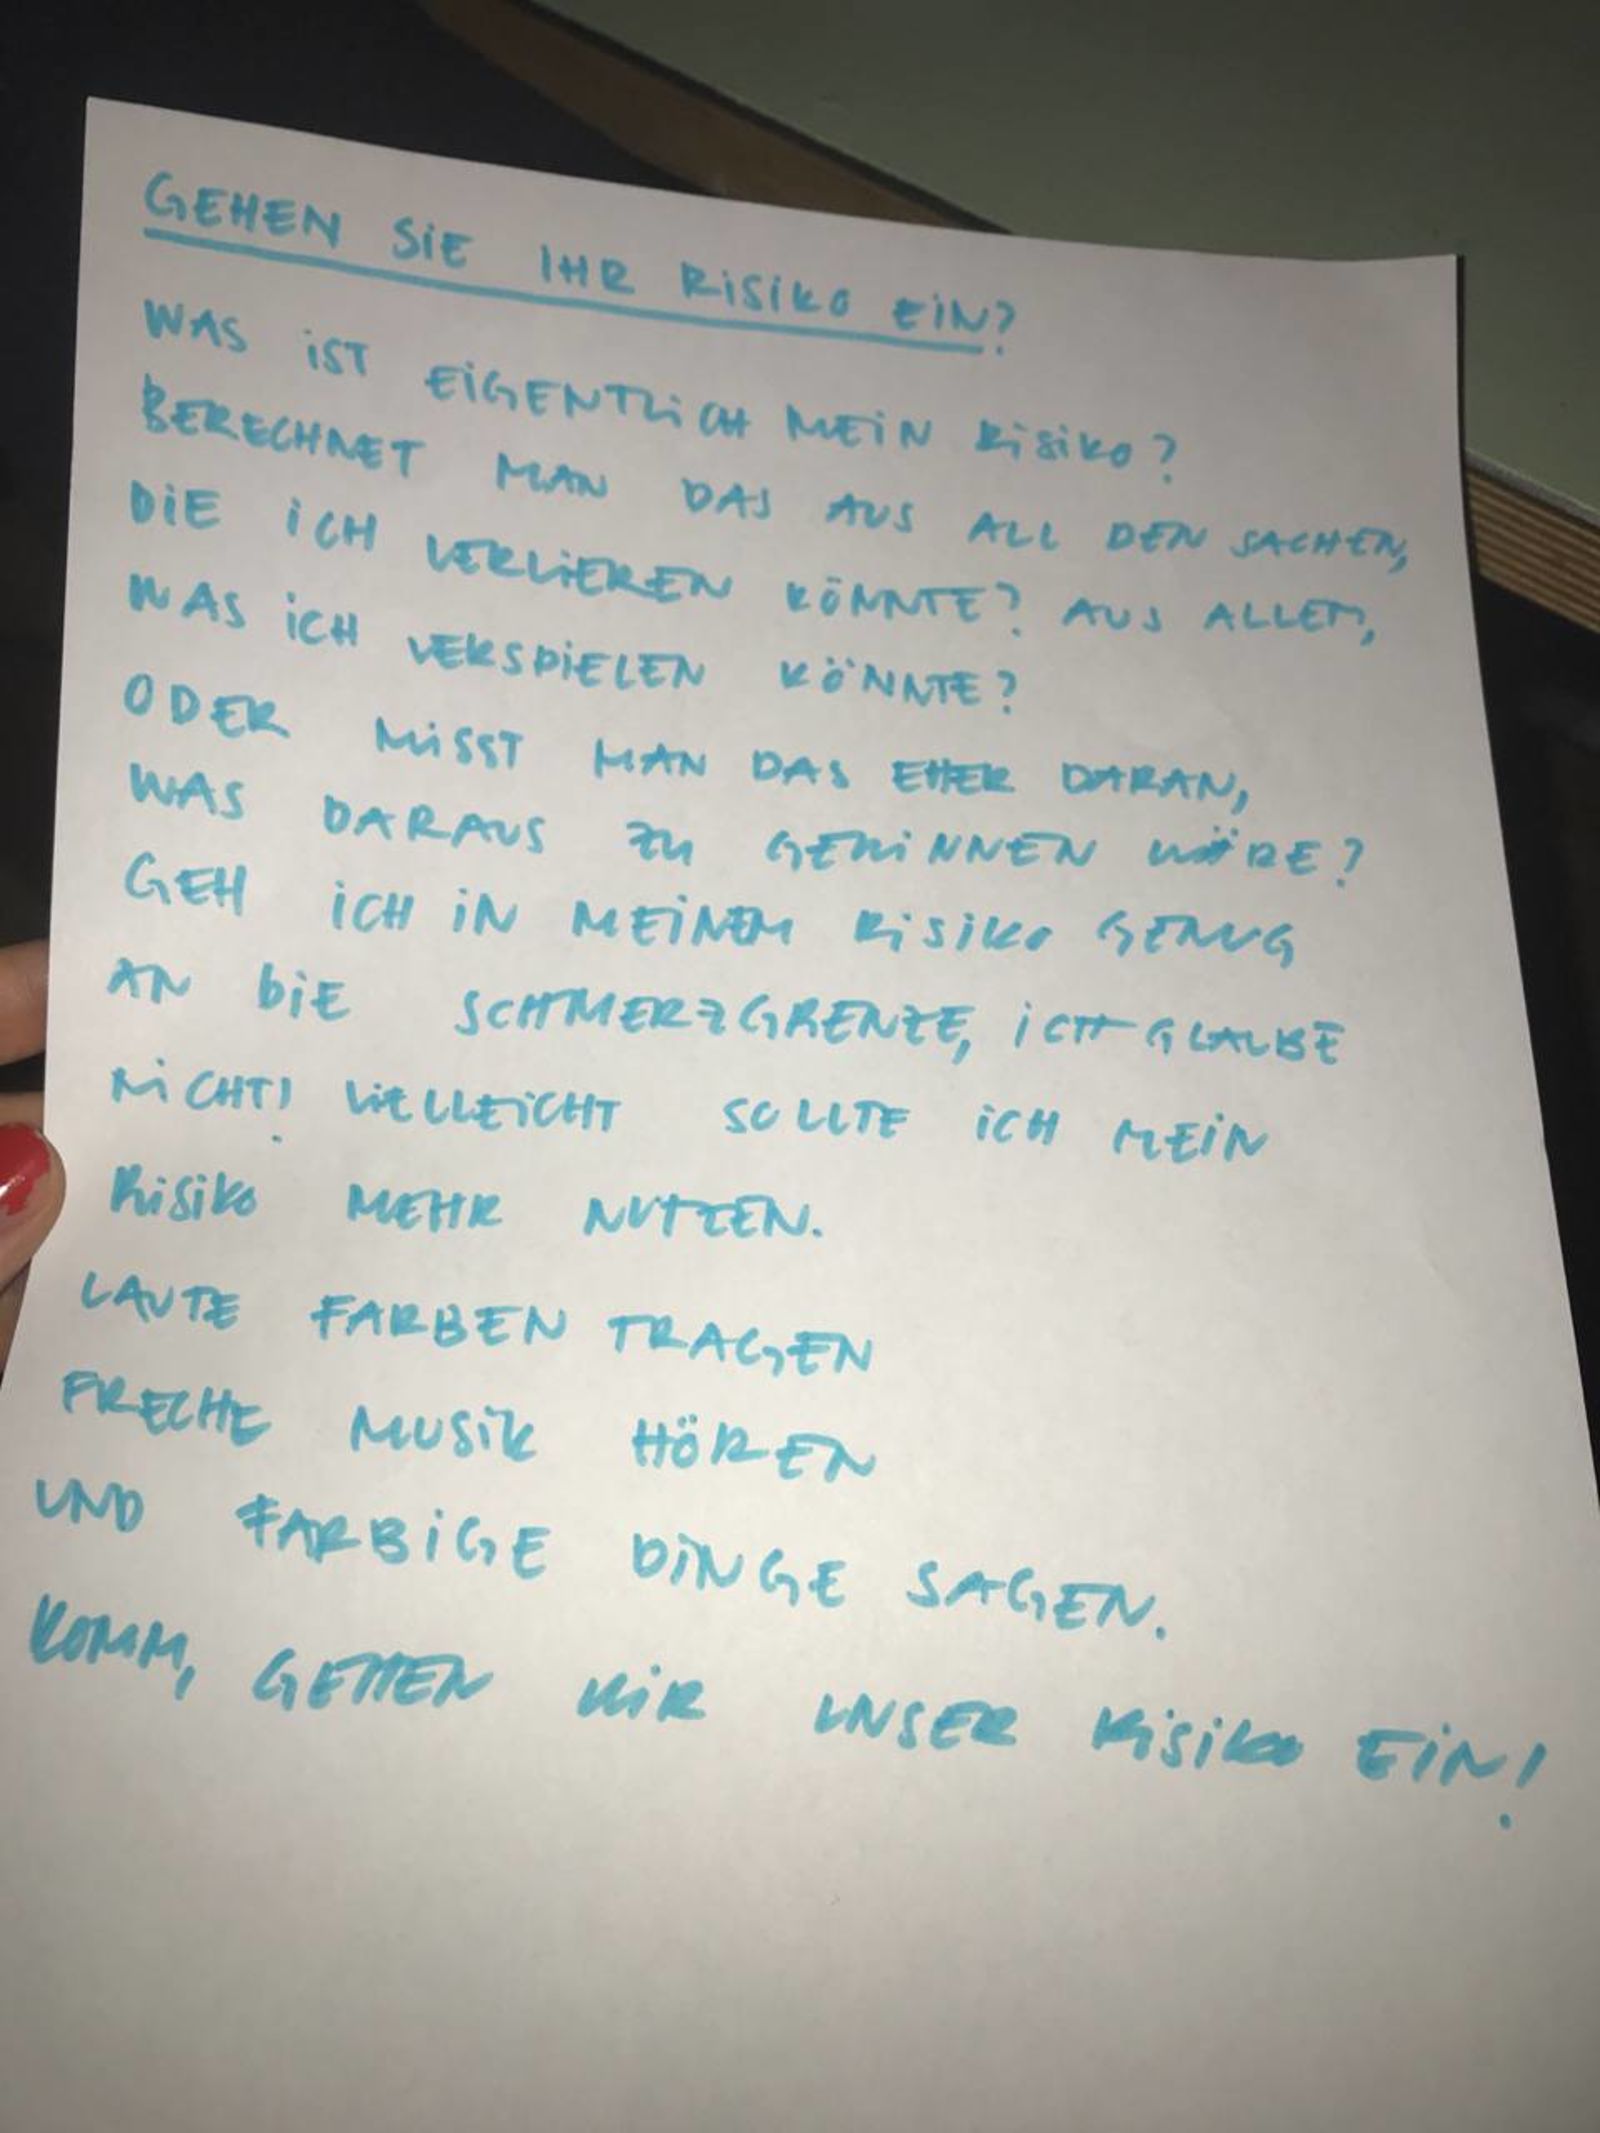 GEHEN SIE IHR RISIKO EIN?
WAS IST EIGENTLICH MEIN RISIKO?
BERECHNET MAN DAS AUS ALL DEN SACHEN,
DIE ICH VERLIEREN KÖNNTE? AUS ALLEM,
WAS ICH VERSPIELEN KÖNNTE?
ODER MISST MAN DAS EHER DARAN,
WAS DARAUS ZU GEWINNEN WÄRE?
GEH ICH IN MEINEM RISIKO GENUG
AN DIE SCHMERZGRENZE, ICH GLAUBE
NICHT! VIELLEICHT SOLLTE ICH MEIN
RISIKO MEHR NUTZEN.
LAUTE FARBEN TRAGEN
FRECHE MUSIK HÖREN
UND FARBIGE DINGE SAGEN.
KOMM, GEHEN WIR UNSER RISIKO EIN!